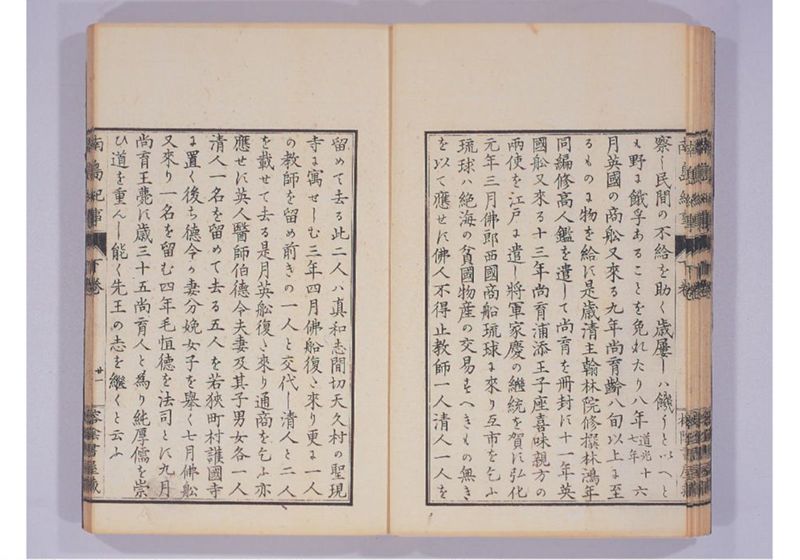 察し民間の不給を助く歳屢しハ饑うといへと
も野に餓孚あることを免れたり八年道光十七年六
月英國の商舩又來る九年尚育齡八旬以上に至
るものに物を給す是歳清主翰林院修撰林鴻年
同編修高人鑑を遣して尚育を冊封す十一年英
國舩又來る十三年尚育浦添王子座喜味親方の
兩使を江戸に遣し將軍家慶の繼統を賀す弘化
元年三月佛郎西國商舩琉球に來り互市を乞ふ
琉球ハ絶海の貧國物産の交易すへきもの無き
を以て應せす佛人不得止教師一人清人一人を
留めて去る此二人ハ真和志間切天久村の聖現
寺に寓せしむ三年四月佛船復た來り更に一人
の教師を留め前きの一人と交代し清人と二人
を載せて去る是月英舩復た來り通商を乞ふ亦
應せす英人醫師伯德令夫妻及其子男女各一人
清人一名を留めて去る五人を若狹町村護國寺
に置く後ち德令の妻分娩女子を舉く七月佛舩
又來り一名を留む四年毛恒德を法司とす九月
尚育王薨す歳三十五尚育人と爲り純厚儒を崇
ひ道を重んし能く先王の志を繼くと云ふ
南島紀事
下卷
廿一